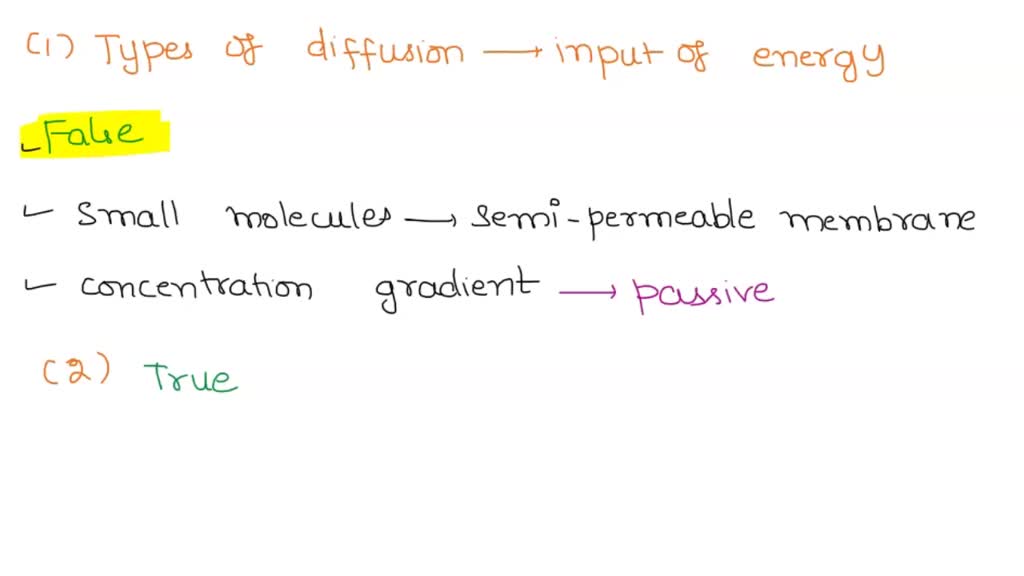 (1) Types of diffusion → input of energy
False
small molecules → semi-permeable membrane
concentration gradient → passive
(2) True